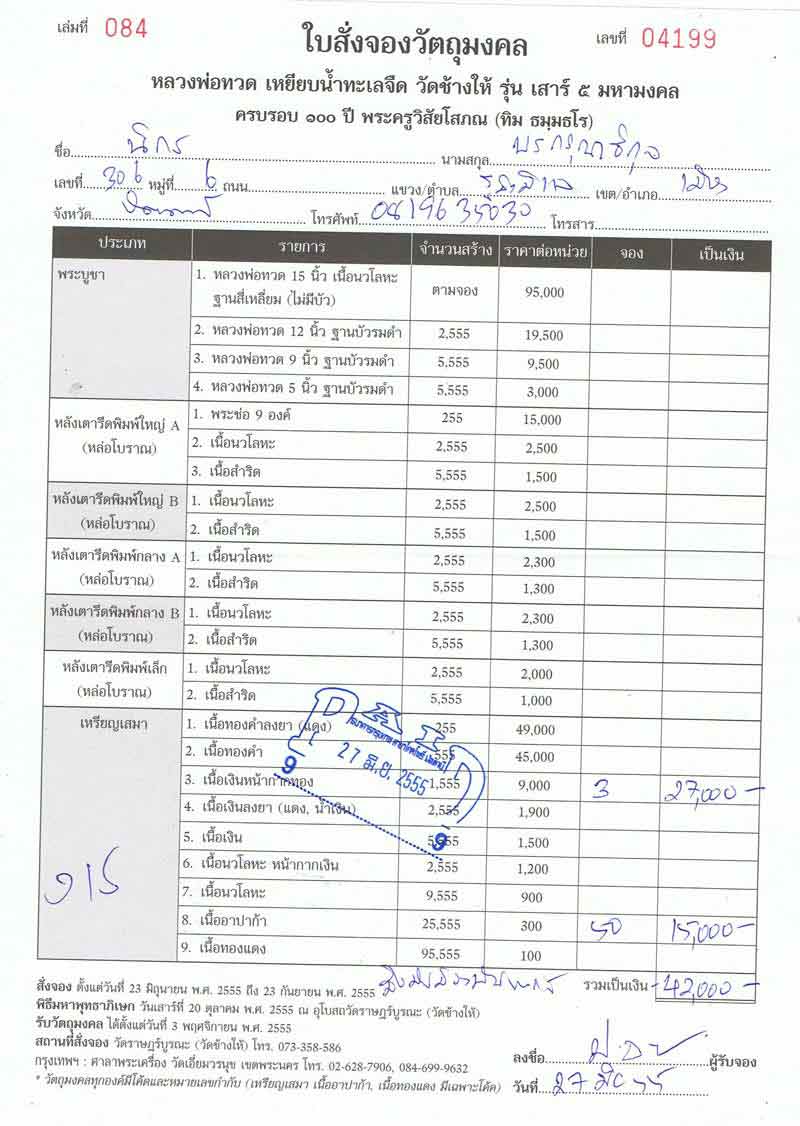 เล่มที่ 084
เลขที่ 04199
ใบสั่งจองวัตถุมงคล
หลวงพ่อทวด เหยียบน้ำทะเลจืด วัดช้างให้ รุ่น เสาร์ ๕ มหามงคล
ครบรอบ ๑๐๐ ปี พระครูวิสัยโสภณ (ทิม ธมฺมธโร)
ชื่อ นิกร นามสกุล
เลขที่ 306 หมู่ที่ 6 ถนน แขวง/ตำบล เขต/อำเภอ เมือง
จังหวัด โทรศัพท์ โทรสาร
ประเภท รายการ จำนวนสร้าง ราคาต่อหน่วย จอง เป็นเงิน
พระบูชา 1. หลวงพ่อทวด 15 นิ้ว เนื้อนวโลหะ
ฐานสี่เหลี่ยม (ไม่มีบัว) ตามจอง 95,000
2. หลวงพ่อทวด 12 นิ้ว ฐานบัวรมดำ 2,555 19,500
3. หลวงพ่อทวด 9 นิ้ว ฐานบัวรมดำ 5,555 9,500
4. หลวงพ่อทวด 5 นิ้ว ฐานบัวรมดำ 5,555 3,000
หลังเตารีดพิมพ์ใหญ่ A
(หล่อโบราณ)
1. พระช่อ 9 องค์ 255 15,000
2. เนื้อนวโลหะ 2,555 2,500
3. เนื้อสำริด 5,555 1,500
หลังเตารีดพิมพ์ใหญ่ B
(หล่อโบราณ)
1. เนื้อนวโลหะ 2,555 2,500
2. เนื้อสำริด 5,555 1,500
หลังเตารีดพิมพ์กลาง A
(หล่อโบราณ)
1. เนื้อนวโลหะ 2,555 2,300
2. เนื้อสำริด 5,555 1,300
หลังเตารีดพิมพ์กลาง B
(หล่อโบราณ)
1. เนื้อนวโลหะ 2,555 2,300
2. เนื้อสำริด 5,555 1,300
หลังเตารีดพิมพ์เล็ก
(หล่อโบราณ)
1. เนื้อนวโลหะ 2,555 2,000
2. เนื้อสำริด 5,555 1,000
เหรียญเสมา
1. เนื้อทองคำลงยา (แดง) 255 49,000
2. เนื้อทองคำ 555 45,000
3. เนื้อเงินหน้ากากทอง 1,555 9,000 3 27,000 -
4. เนื้อเงินลงยา (แดง, น้ำเงิน) 2,555 1,900
5. เนื้อเงิน 5,555 1,500
6. เนื้อนวโลหะ หน้ากากเงิน 2,555 1,200
7. เนื้อนวโลหะ 9,555 900
8. เนื้ออาปาก้า 25,555 300 50 15,000 -
9. เนื้อทองแดง 95,555 100
27 มิ.ย. 2555
9
9
สั่งจอง ตั้งแต่วันที่ 23 มิถุนายน พ.ศ. 2555 ถึง 23 กันยายน พ.ศ. 2555
รวมเป็นเงิน 42,000 -
พิธีมหาพุทธาภิเษก วันเสาร์ที่ 20 ตุลาคม พ.ศ. 2555 ณ อุโบสถวัดราษฎร์บูรณะ (วัดช้างให้)
รับวัตถุมงคล ได้ตั้งแต่วันที่ 3 พฤศจิกายน พ.ศ. 2555
สถานที่สั่งจอง วัดราษฎร์บูรณะ (วัดช้างให้) โทร. 073-358-586
กรุงเทพฯ : ศาลาพระเครื่อง วัดเอี่ยมวรนุช เขตพระนคร โทร. 02-628-7906, 084-699-9632
* วัตถุมงคลทุกองค์มีโค้ดและหมายเลขกำกับ (เหรียญเสมา เนื้ออาปาก้า, เนื้อทองแดง มีเฉพาะโค้ด)
ลงชื่อ ผู้รับจอง
วันที่ 27